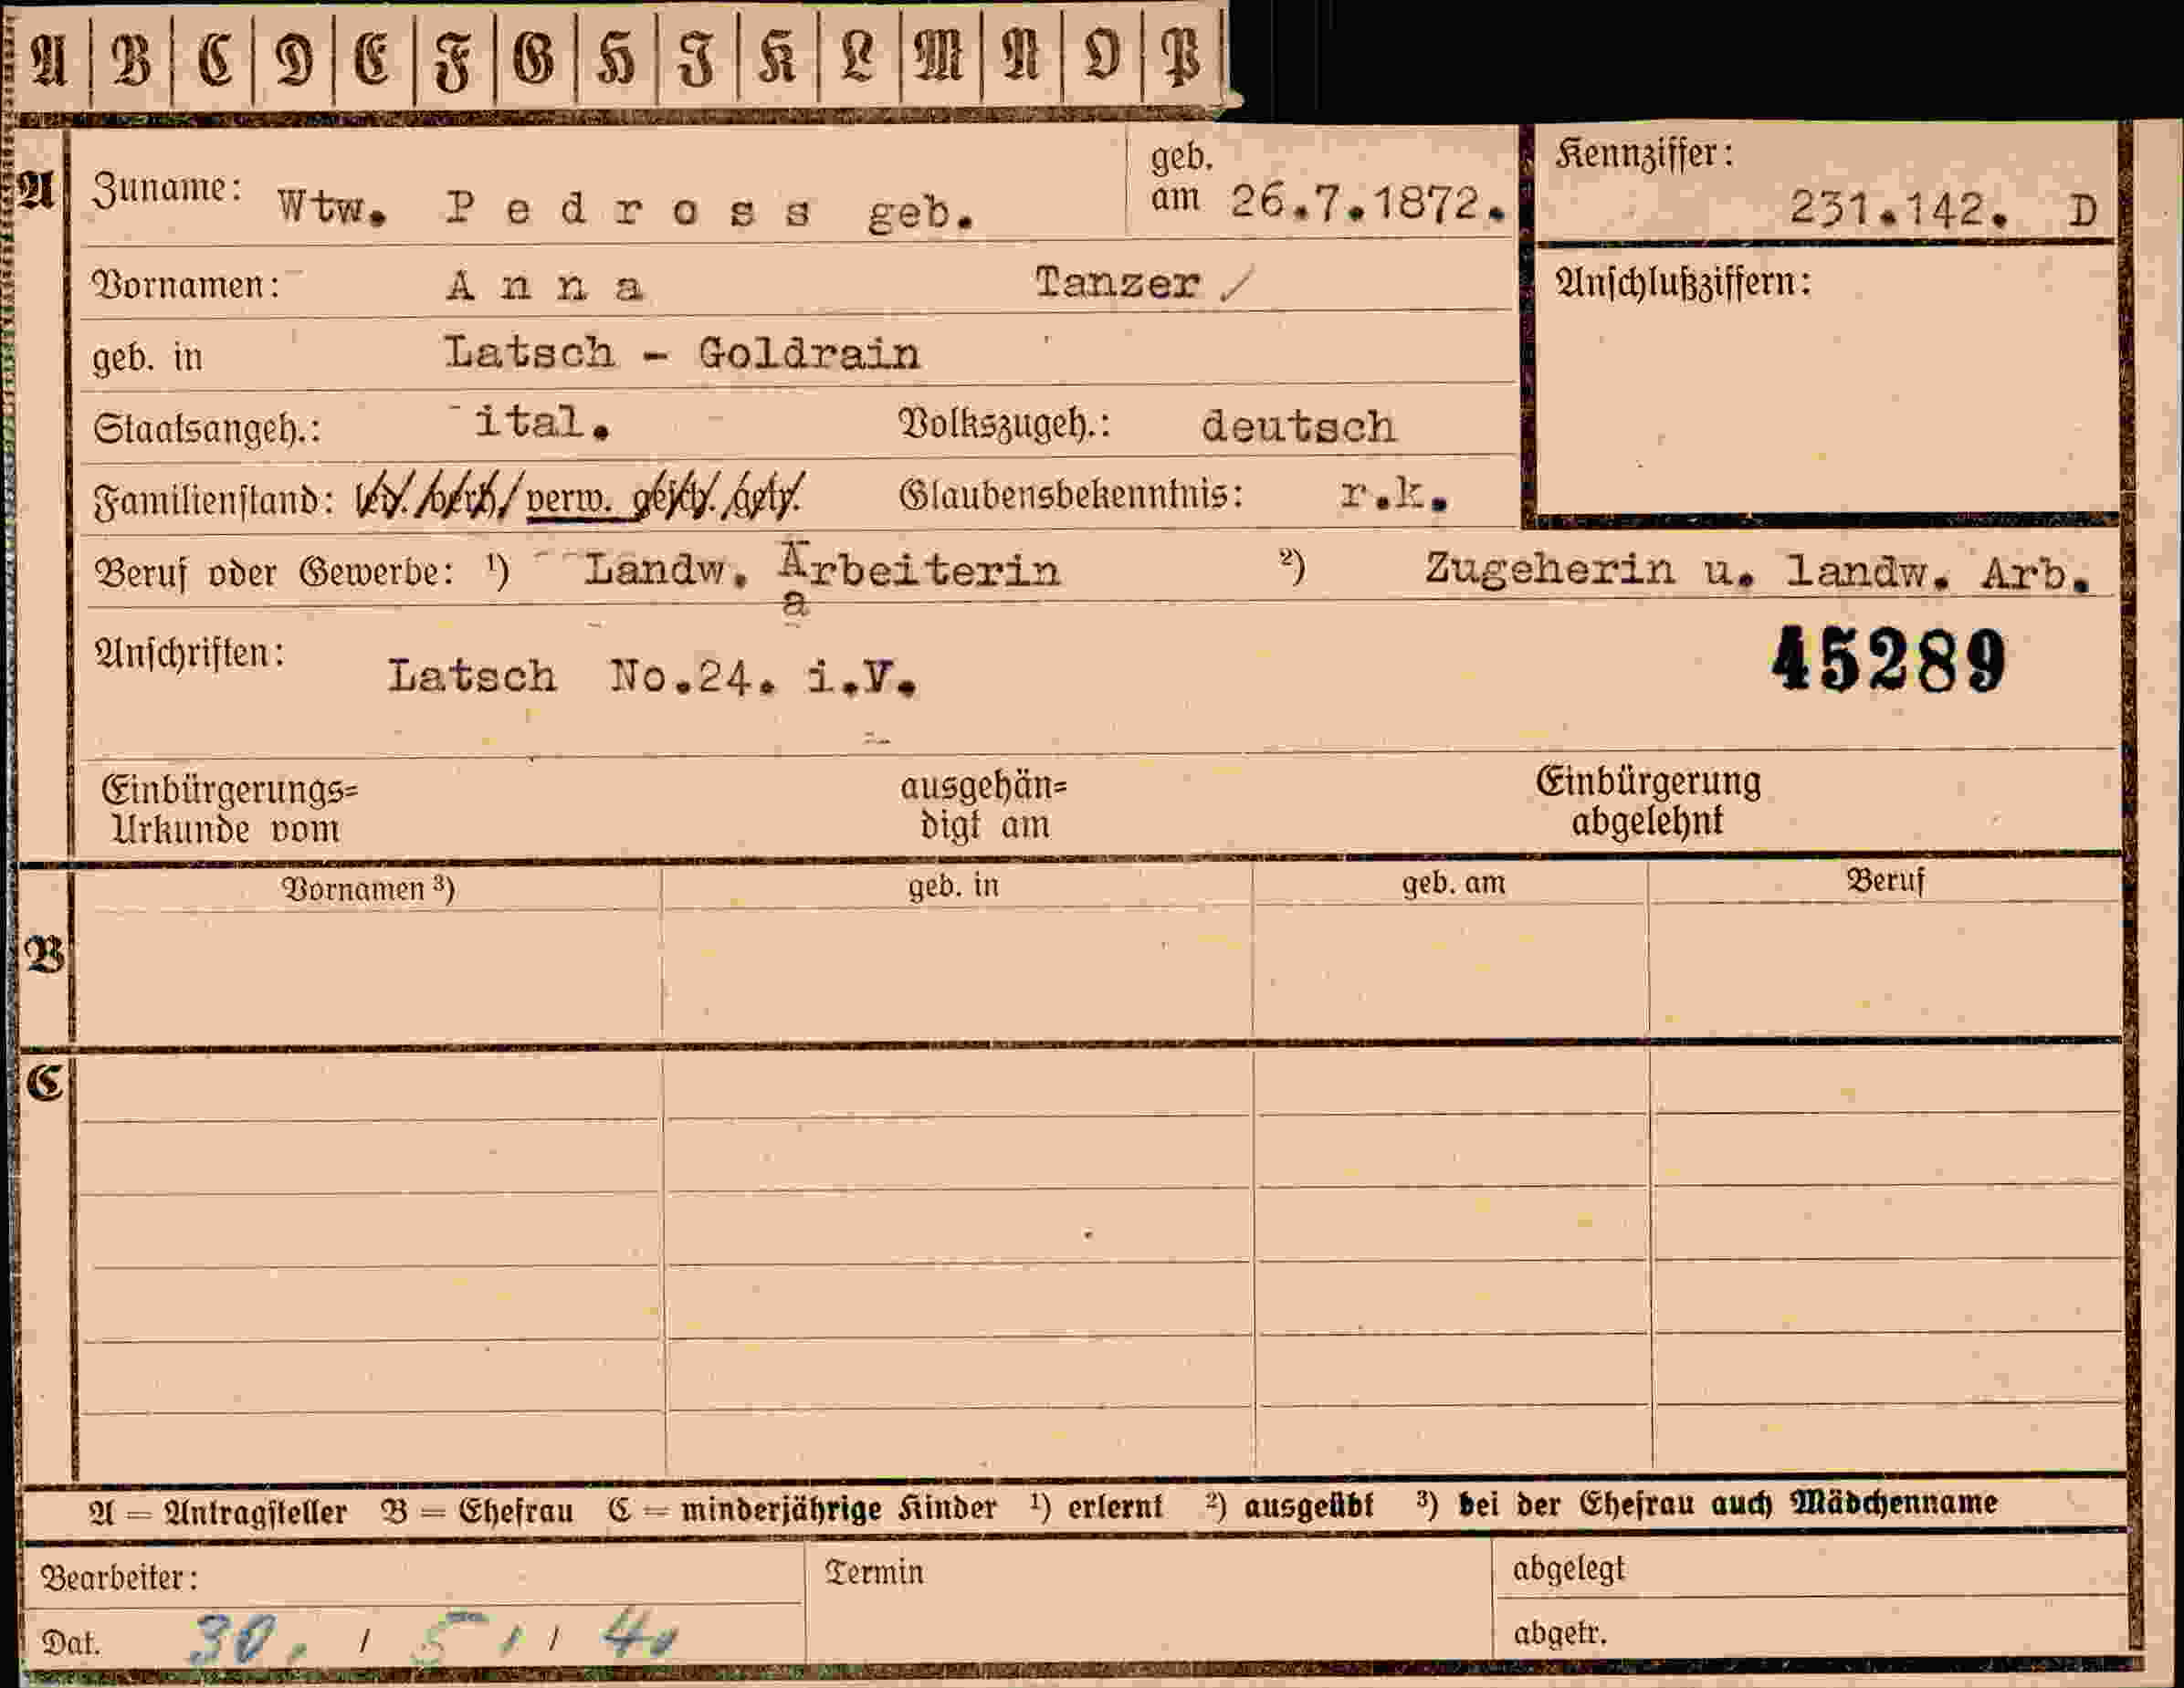 A B C D E F G H I K L M N O P
A Zuname: Wtw. Pedross geb. geb. am 26.7.1872. Kennziffer: 231.142. D
Vornamen: Anna Tanzer / Anschlußziffern:
geb. in Latsch - Goldrain
Staatsangeh.: ital. Volkszugeh.: deutsch
Familienstand: led./verh./verw. gesch./getr. Glaubensbekenntnis: r.k.
Beruf oder Gewerbe: ¹) Landw. Arbeiterin ²) Zugeherin u. landw. Arb.
a
Anschriften: Latsch No.24. i.V. 45289
Einbürgerungs= ausgehän= Einbürgerung
Urkunde vom digt am abgelehnt
Vornamen ³) geb. in geb. am Beruf
B
C
A = Antragsteller B = Ehefrau C = minderjährige Kinder ¹) erlernt ²) ausgeübt ³) bei der Ehefrau auch Mädchenname
Bearbeiter: Termin abgelegt
Dat. 30. / 5. / 40 abgetr.